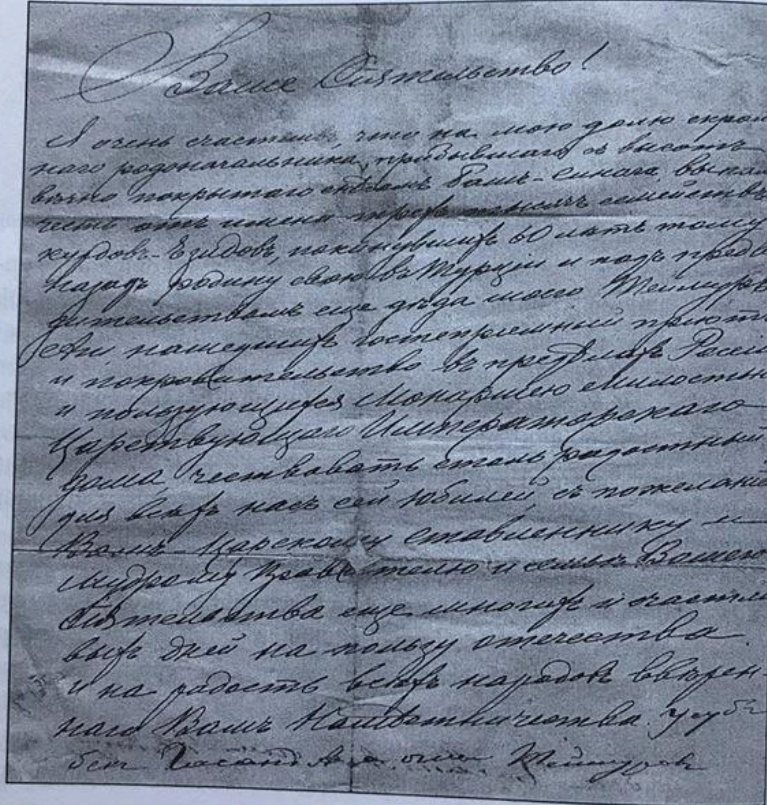 Ваше Сіятельство!
Я очень счастливъ, что на мою долю скром
наго родоначальника, прибывшаго съ высотъ
вѣчно покрытаго снѣгомъ выпала
честь отъ имени трехъ тысячъ семействъ
курдовъ-Езидовъ, покинувшихъ 60 лѣтъ тому
назадъ родину свою въ Турціи и подъ предво
дительствомъ еще дѣда моего
Аги нашедшихъ гостепріимный пріютъ
и покровительство въ предѣлахъ Россіи
и пользующихся Монаршею милостью
Царствующаго Императорскаго
дома чествовать столь радостный
для всѣхъ насъ сей юбилей съ пожеланіе
Вамъ-Царскому ставленнику и
мудрому Правителю и семьѣ Вашего
Сіятельства еще многихъ и счастли
выхъ дней на пользу отечества
и на радость всѣхъ народовъ ввѣрен-
наго Вамъ Намѣстничества.
бекъ Гасанъ Ага